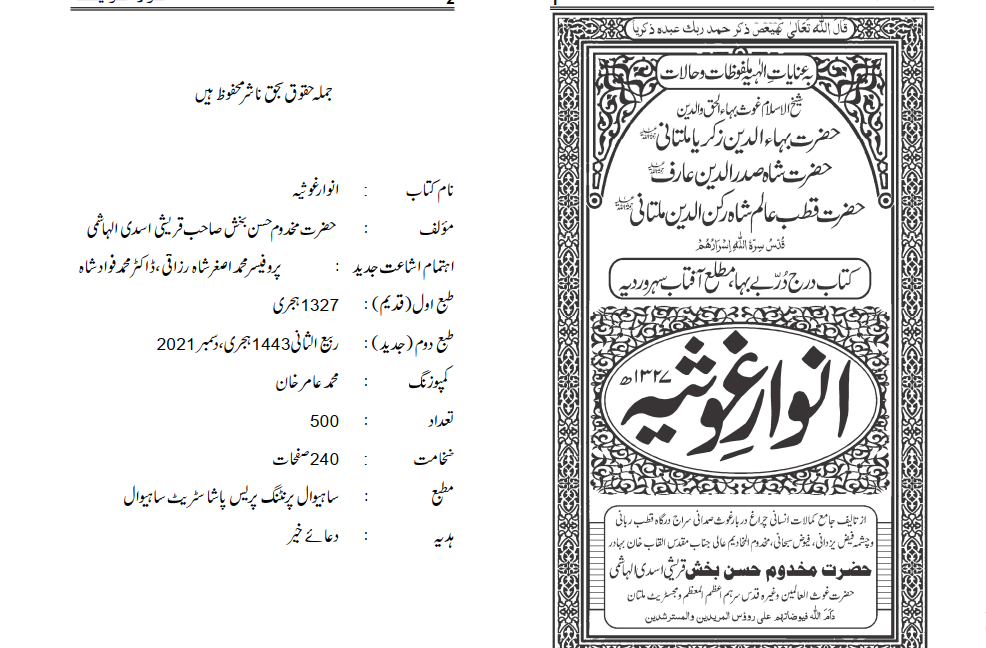 قال الله تعالیٰ کهیعص ذکر رحمة ربك عبده ذكريا
بہ عنایات الٰہیہ ملفوظات و حالات
شیخ الاسلام غوث بہاء الحق والدین
حضرت بہاء الدین زکریا ملتانی
حضرت شاہ صدر الدین عارف
حضرت قطب عالم شاہ رکن الدین ملتانی
قدس سرة الله اسرارهم
کتاب درج دُرّ بے بہا، مطلع آفتاب سہروردیہ
انوارِ غوثیہ
۱۳۲۷ھ
از تالیف جامع کمالات انسانی چراغ دربار غوث صمدانی سراج درگاہ قطب ربانی
وچشمہ فیض یزدانی، فیوض سبحانی، مخدوم المخادیم عالی جناب مقدس القاب خان بہادر
حضرت مخدوم حسن بخش قریشی اسدی الہاشمی
حضرت غوث العالمین وغیرہ قدس سرہم اعظم المعظم و مجسٹریٹ ملتان
دام الله فيوضاتهم على رؤوس المريدين والمسترشدين
2
جملہ حقوق بحق ناشر محفوظ ہیں
نام کتاب : انوار غوثیہ
مؤلف : حضرت مخدوم حسن بخش صاحب قریشی اسدی الہاشمی
اہتمام اشاعت جدید : پروفیسر محمد اصغر شاہ رزاقی، ڈاکٹر محمد فواد شاہ
طبع اول (قدیم) : 1327 ہجری
طبع دوم (جدید) : ربیع الثانی 1443 ہجری، دسمبر 2021
کمپوزنگ : محمد عامر خان
تعداد : 500
ضخامت : 240 صفحات
مطبع : ساہیوال پرنٹنگ پریس پاشا سٹریٹ ساہیوال
ہدیہ : دعائے خیر